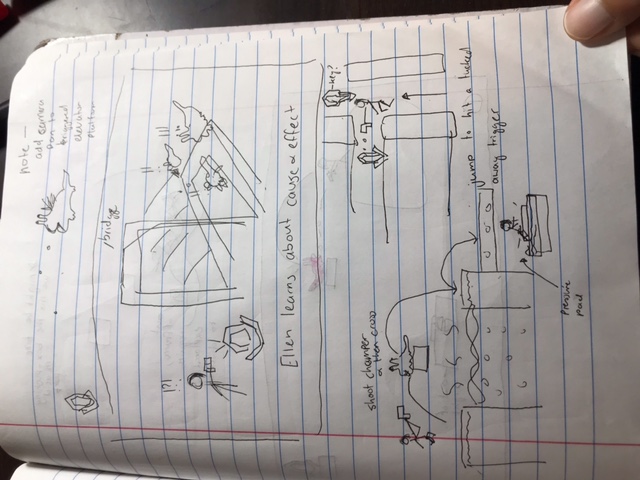 note -
add camera
pan to
triggered
elevator
platform
bridge
!?!
!!
!!!
!!
Ellen learns about cause & effect
key?
shoot chomper
& then cross
jump to hit a tucked
away trigger
pressure
pad